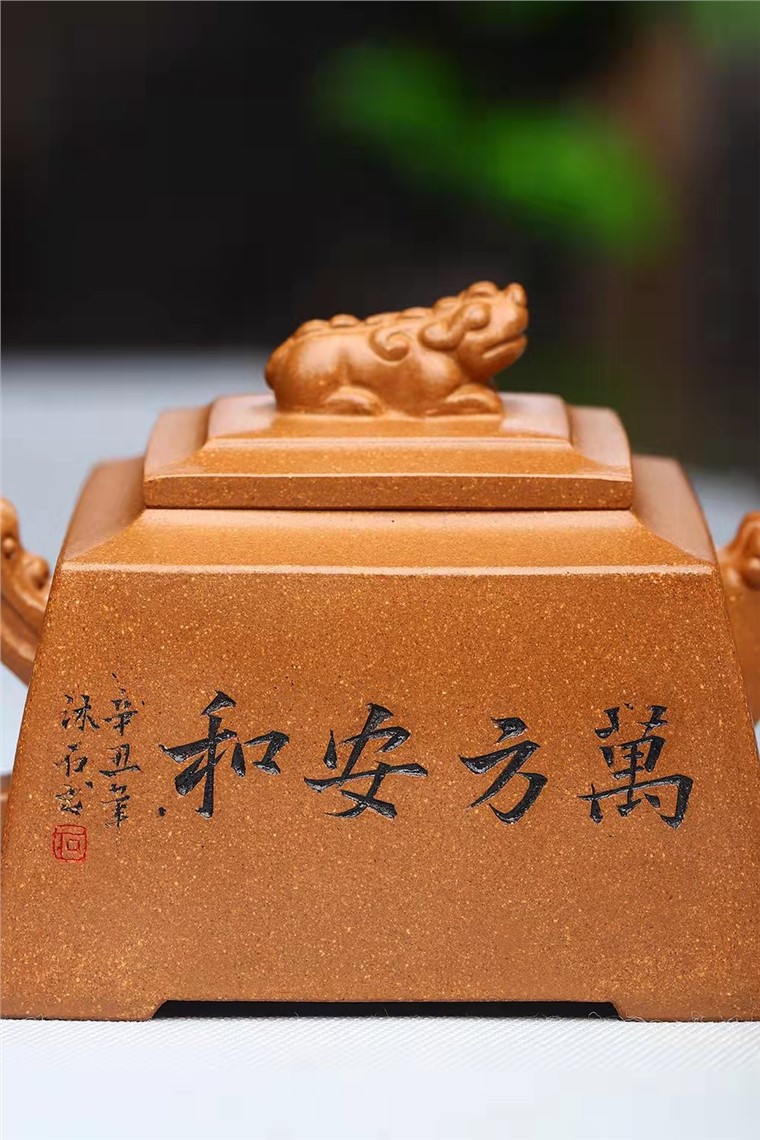 萬方安和
辛丑年
沐石
石